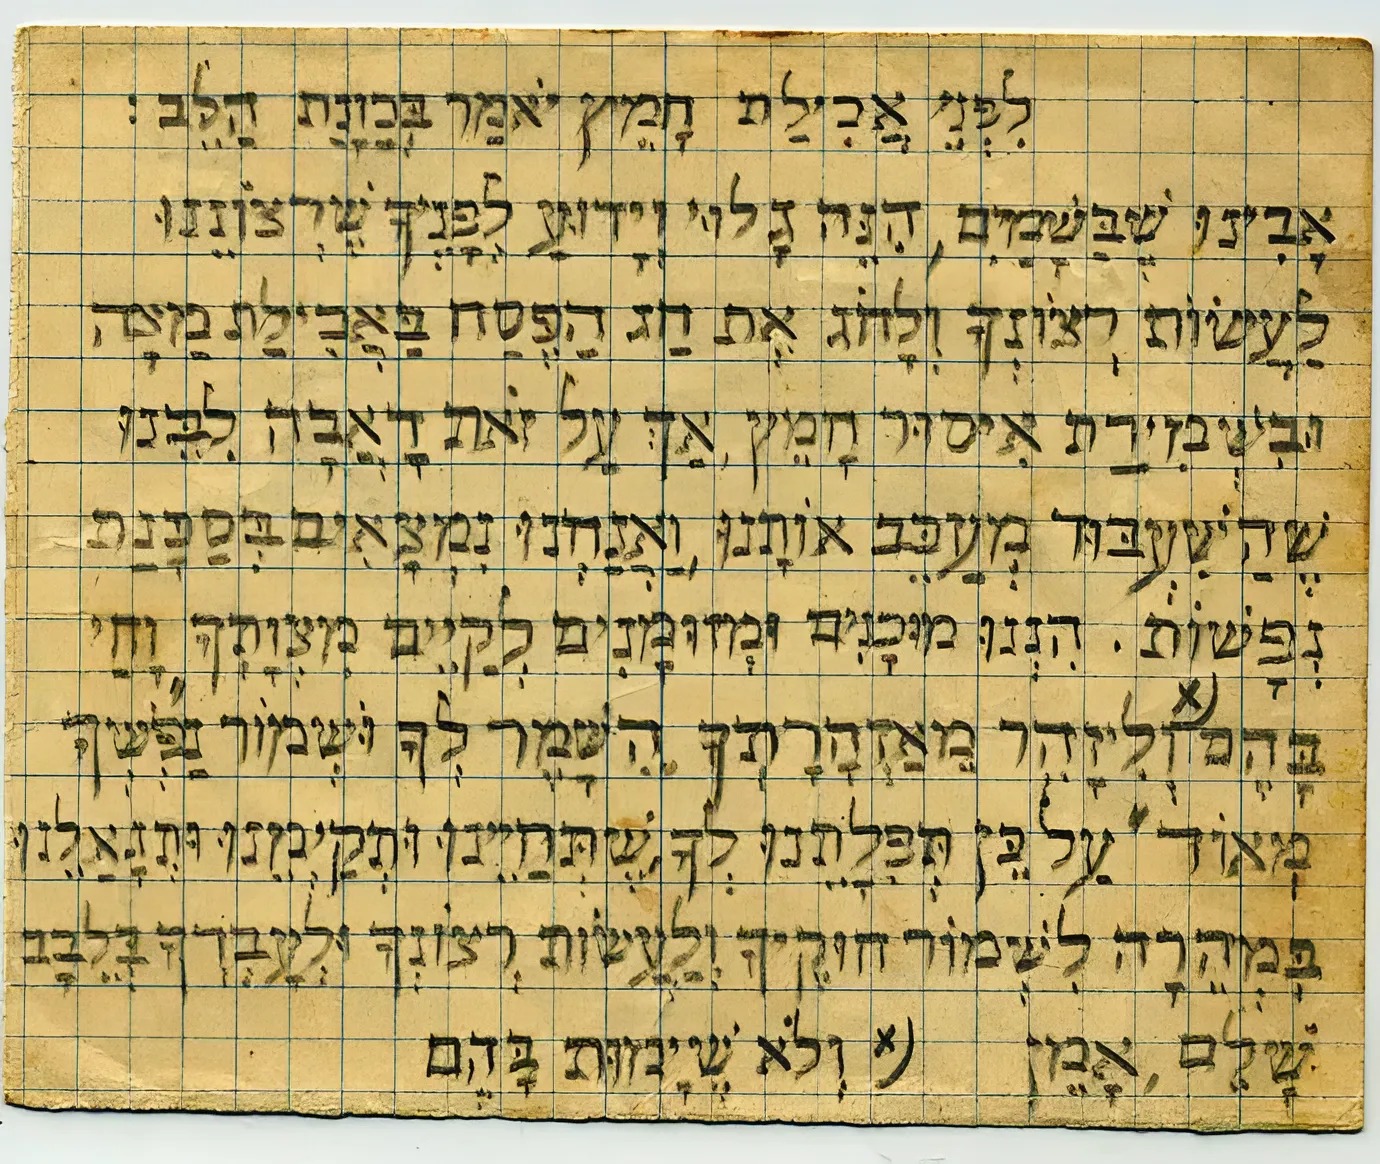 לִפְנֵי אֲכִילַת חָמֵץ יֹאמַר בְּכַוָּנַת הַלֵּב :
אָבִינוּ שֶׁבַּשָׁמַיִם, הִנֵּה גָלוּי וְיָדוּעַ לְפָנֶיךָ שֶׁרְצוֹנֵנוּ
לַעֲשׂוֹת רְצוֹנְךָ וְלָחֹג אֶת חַג הַפֶּסַח בַּאֲכִילַת מַצָּה
וּבִשְׁמִירַת אִיסוּר חָמֵץ, אַךְ עַל זֹאת דָאֲבָה לִבֵּנוּ
שֶׁהַשִׁעְבּוּד מְעַכֵּב אוֹתָנוּ, וַאֲנַחְנוּ נִמְצָאִים בְּסַכָּנַת
נְפָשׁוֹת. הִנְנוּ מוּכָנִים וּמְזוּמָּנִים לְקַיֵּים מִצְוָתְךָ "וָחַי
בָּהֶם" x) וְלִיזָהֵר מֵאַזְהָרָתְךָ "הִשָּׁמֶר לְךָ וּשְׁמוֹר נַפְשְׁךָ
מְאוֹד" עַל כֵּן תְּפִלָתֵנוּ לְךָ, שֶׁתְּחַיֵּינוּ וּתְקַיְימֵנוּ וְתִגְאָלֵנוּ
בִּמְהֵרָה לִשְׁמוֹר חוּקֶיךָ וְלַעֲשׂוֹת רְצוֹנְךָ וּלְעָבְדְךָ בְּלֵבָב
שָׁלֵם, אָמֵן x) וְלֹא שֶׁיָמוּת בָּהֶם